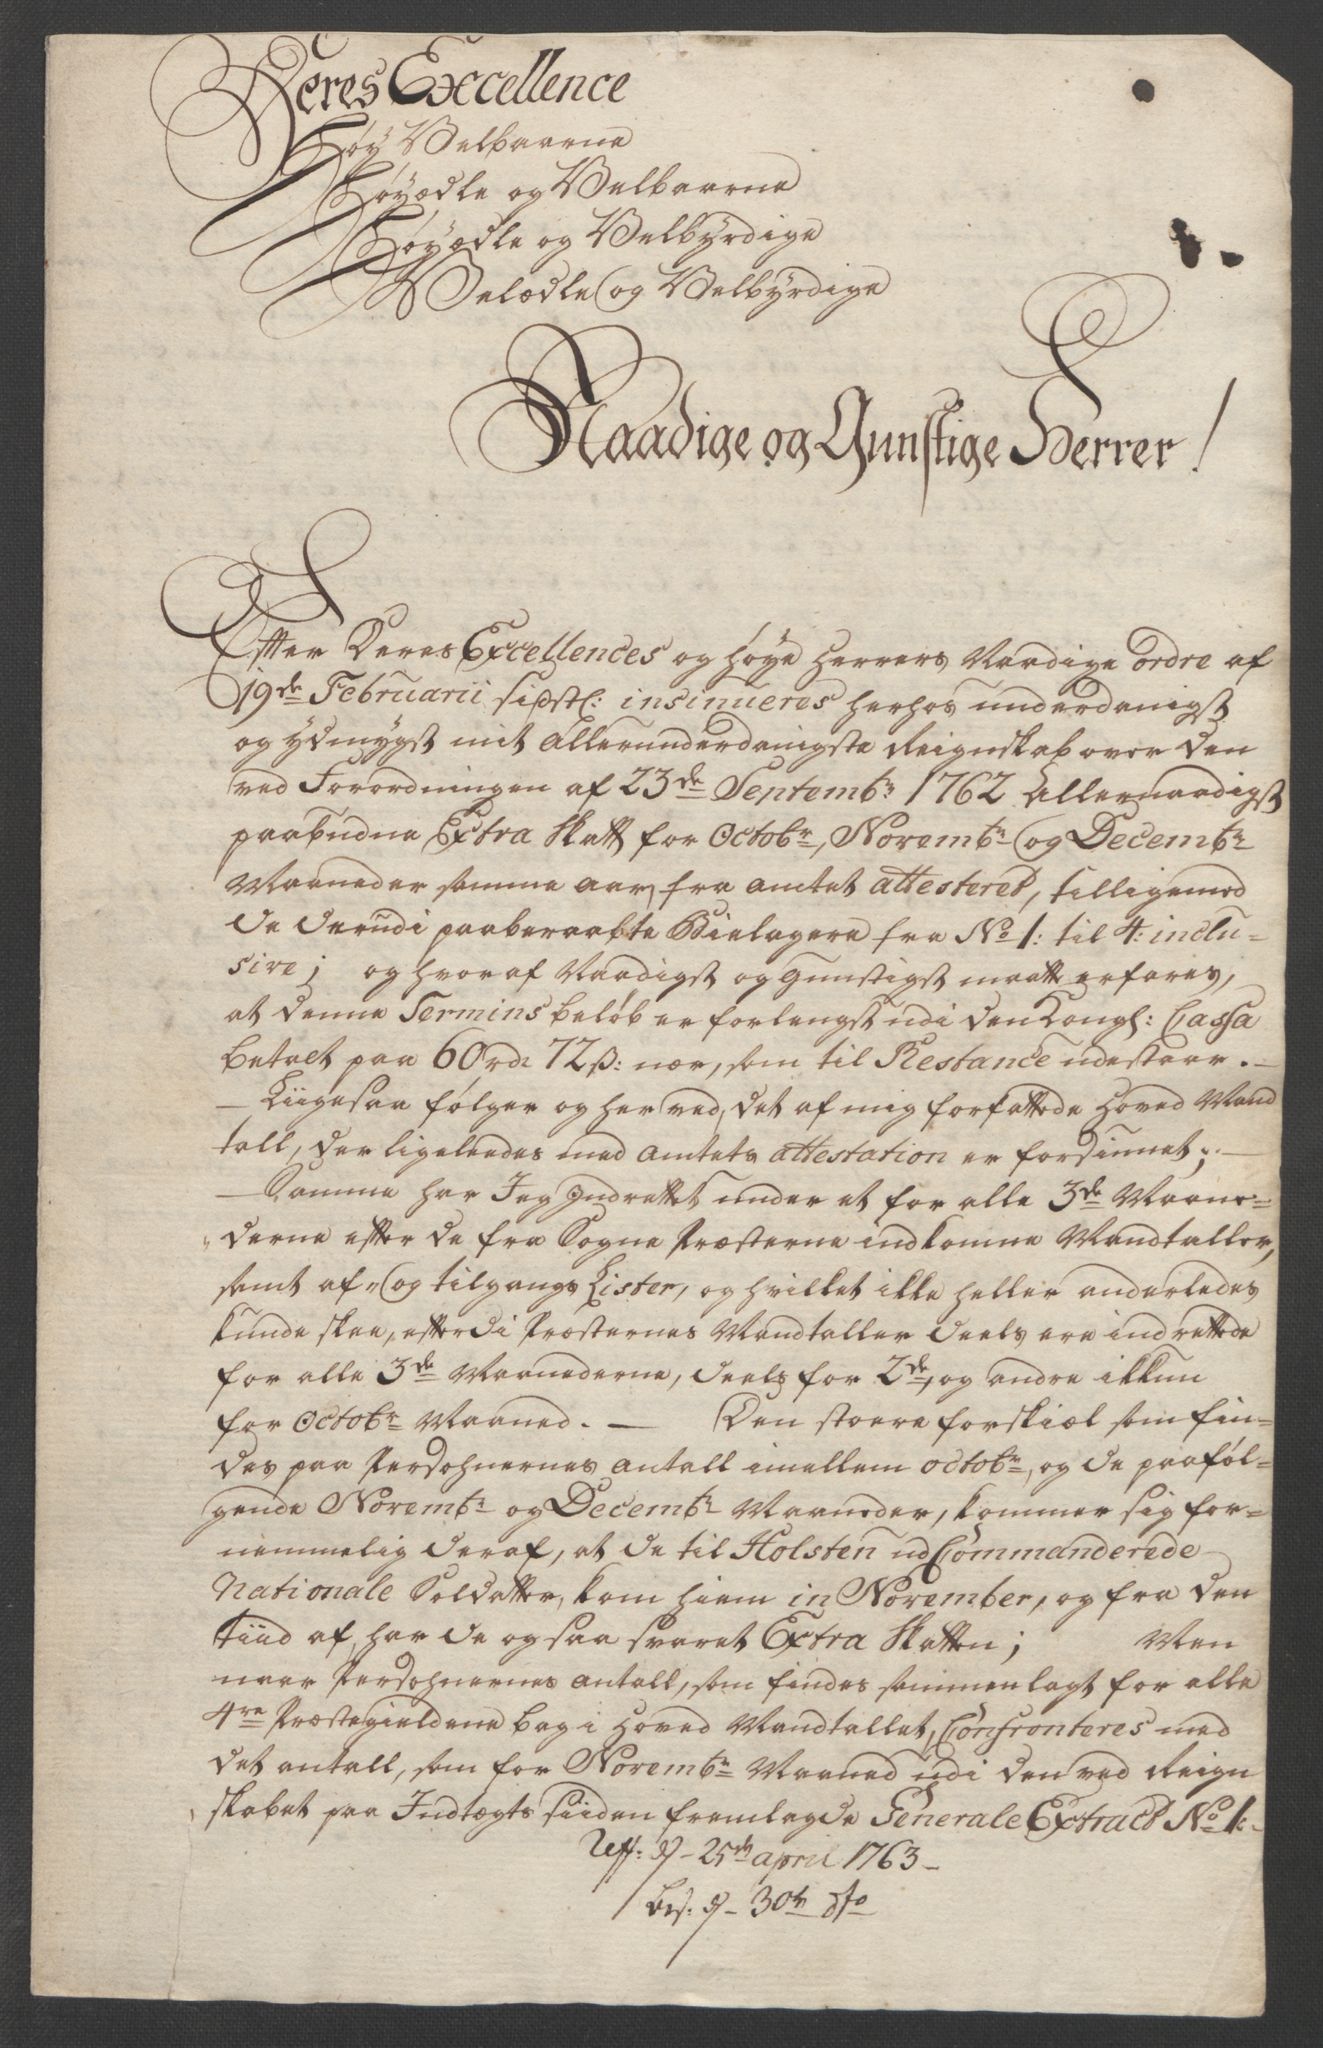 Deres Excellence
Høy Velbaarne
Høyædle og Velbaarne
Høyædle og Velbyrdige
Velædle og Velbyrdige
Naadige og Gunstige Herrer!
Efter Deres Excellences og høye Herrers Naadige ordre af
19de Februarii sidstl: insinueres herhos underdanigst
og ydmygst mit allerunderdanigste Reignskab over den
ved Forordningen af 23de Septembr: 1762 Allernaadigst
paabudne Extra Skatt for Octobr, Novembr og Decembr
Maaneder samme aar, fra amtet attesteret, tilligemed
de derudi paaberaabte Bielagere fra No 1: til 4: inclu-
sive; og hvoraf Naadigst og gunstigst maatte erfares,
at denne Termins beløb er forlengst udi den Kongl: Cassa
betalt paa 60 rd 72 ß: nær, som til Restance udestaar. -
- Liigesaa følger og her ved, det af mig forfattede Hoved Mand
tall, der ligeleedes med amtets attestation er forsiunet; -
- Samme har Jeg Indrettet under et for alle 3de Maane-
derne efter de fra Sogne Præsterne indkomne Mandtaller,
samt af- og tilgangs Lister, og hvilket ikke heller anderledes
kunde skee, efterdi Præsternes Mandtaller deels ere indrettede
for alle 3de Maanederne, deels for 2de, og andre ikkun
for Octobr Maaned. - Den stoere forskiæl som fin-
des paa Persohnernes antall imellem octobr, og de paaføl-
gende Novembr og Decembr Maaneder, kommer sig for-
nemmelig deraf, at de til Holsten udCommanderede
Nationale Soldatter, kom hiem in November, og fra den
tiid af, har de og saa svaret Extra Skatten; Men
naar Persohnernes antall, som findes sammenlagt for alle
4re Præstegieldene bag i Hoved Mandtallet, Confronteres med
det antall, som for Novembr Maaned udi den ved Reign
skabet paa Indtægts siiden fremlagde Generale Extract No 1:
25de april 1763 -
30te dto